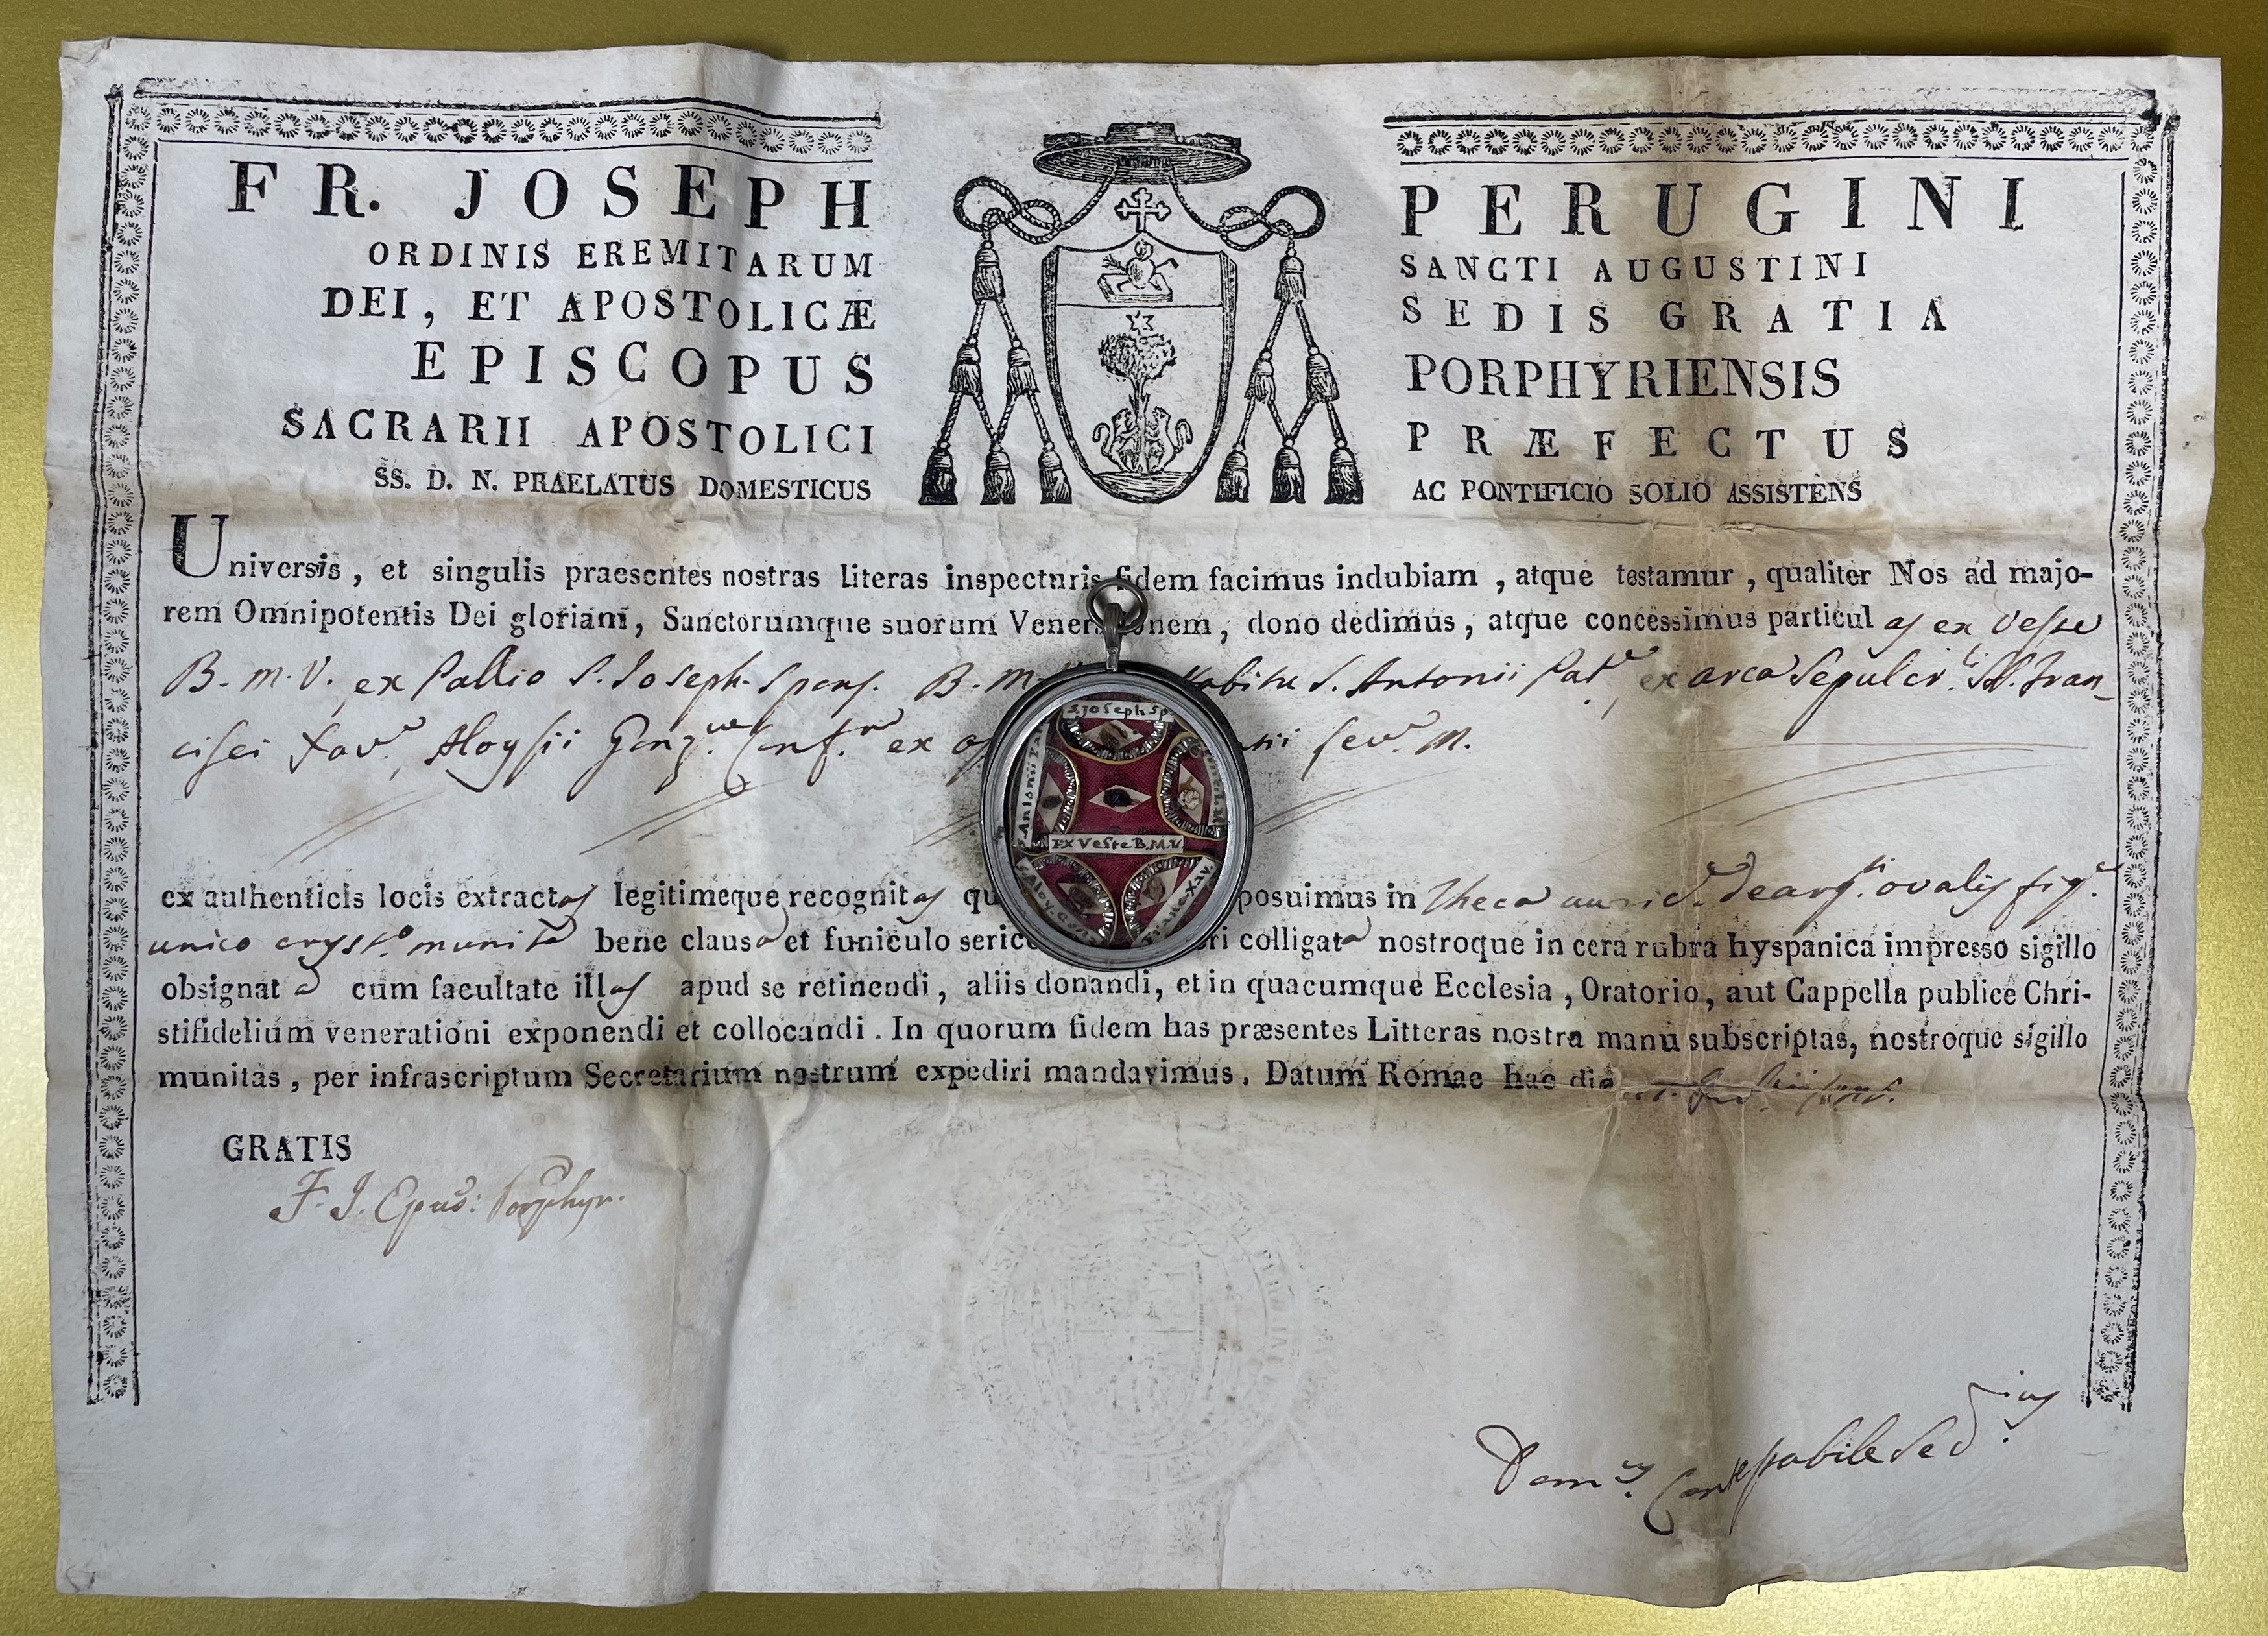 FR. JOSEPH PERUGINI
ORDINIS EREMITARUM SANCTI AUGUSTINI
DEI, ET APOSTOLICÆ SEDIS GRATIA
EPISCOPUS PORPHYRIENSIS
SACRARII APOSTOLICI PRÆFECTUS
SS. D. N. PRAELATUS DOMESTICUS AC PONTIFICIO SOLIO ASSISTENS
Universis, et singulis praesentes nostras literas inspecturis fidem facimus indubiam, atque testamur, qualiter Nos ad majo-
rem Omnipotentis Dei gloriam, Sanctorumque suorum Venerationem, dono dedimus, atque concessimus particulas ex Veste
B. M. V. ex Pallio S. Joseph. Spons. B. M. Habitu S. Antonii Pat. ex arca Sepulcr. SS. Fran-
cisci Xav. Aloysii Gonz. Conf. ex M.
S. Joseph Sp.
Antonii
EX Veste B.M.V.
ex authenticis locis extractas legitimeque recognitas posuimus in Theca ovalis fig.
unico cryst.o munita bene clausa et funiculo seric colligata nostroque in cera rubra hyspanica impresso sigillo
obsignata cum facultate illas apud se retinendi, aliis donandi, et in quacumque Ecclesia, Oratorio, aut Cappella publice Chri-
stifidelium venerationi exponendi et collocandi. In quorum fidem has præsentes Litteras nostra manu subscriptas, nostroque sigillo
munitas, per infrascriptum Secretarium nostrum expediri mandavimus. Datum Romae hac die
GRATIS
F. J. Epus: Porphyr.